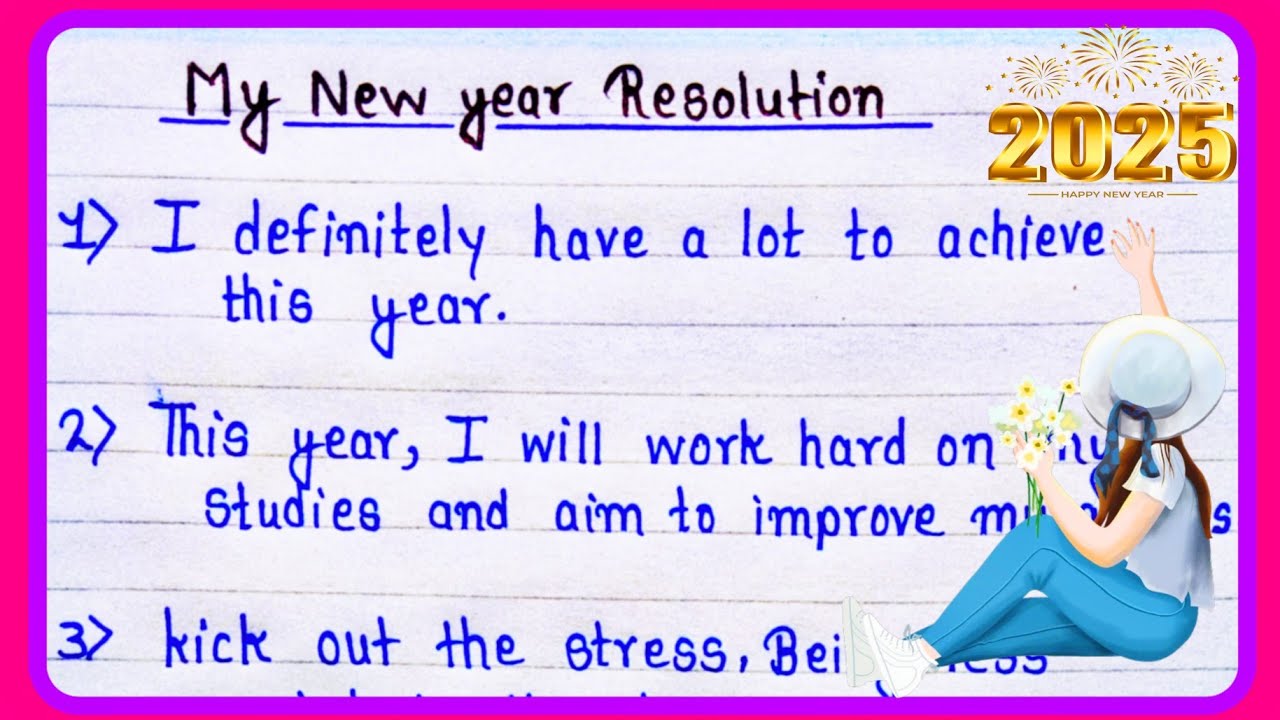 My New year Resolution
2025
HAPPY NEW YEAR
1) I definitely have a lot to achieve
this year.
2) This year, I will work hard on my
studies and aim to improve my
3) kick out the stress, Being less